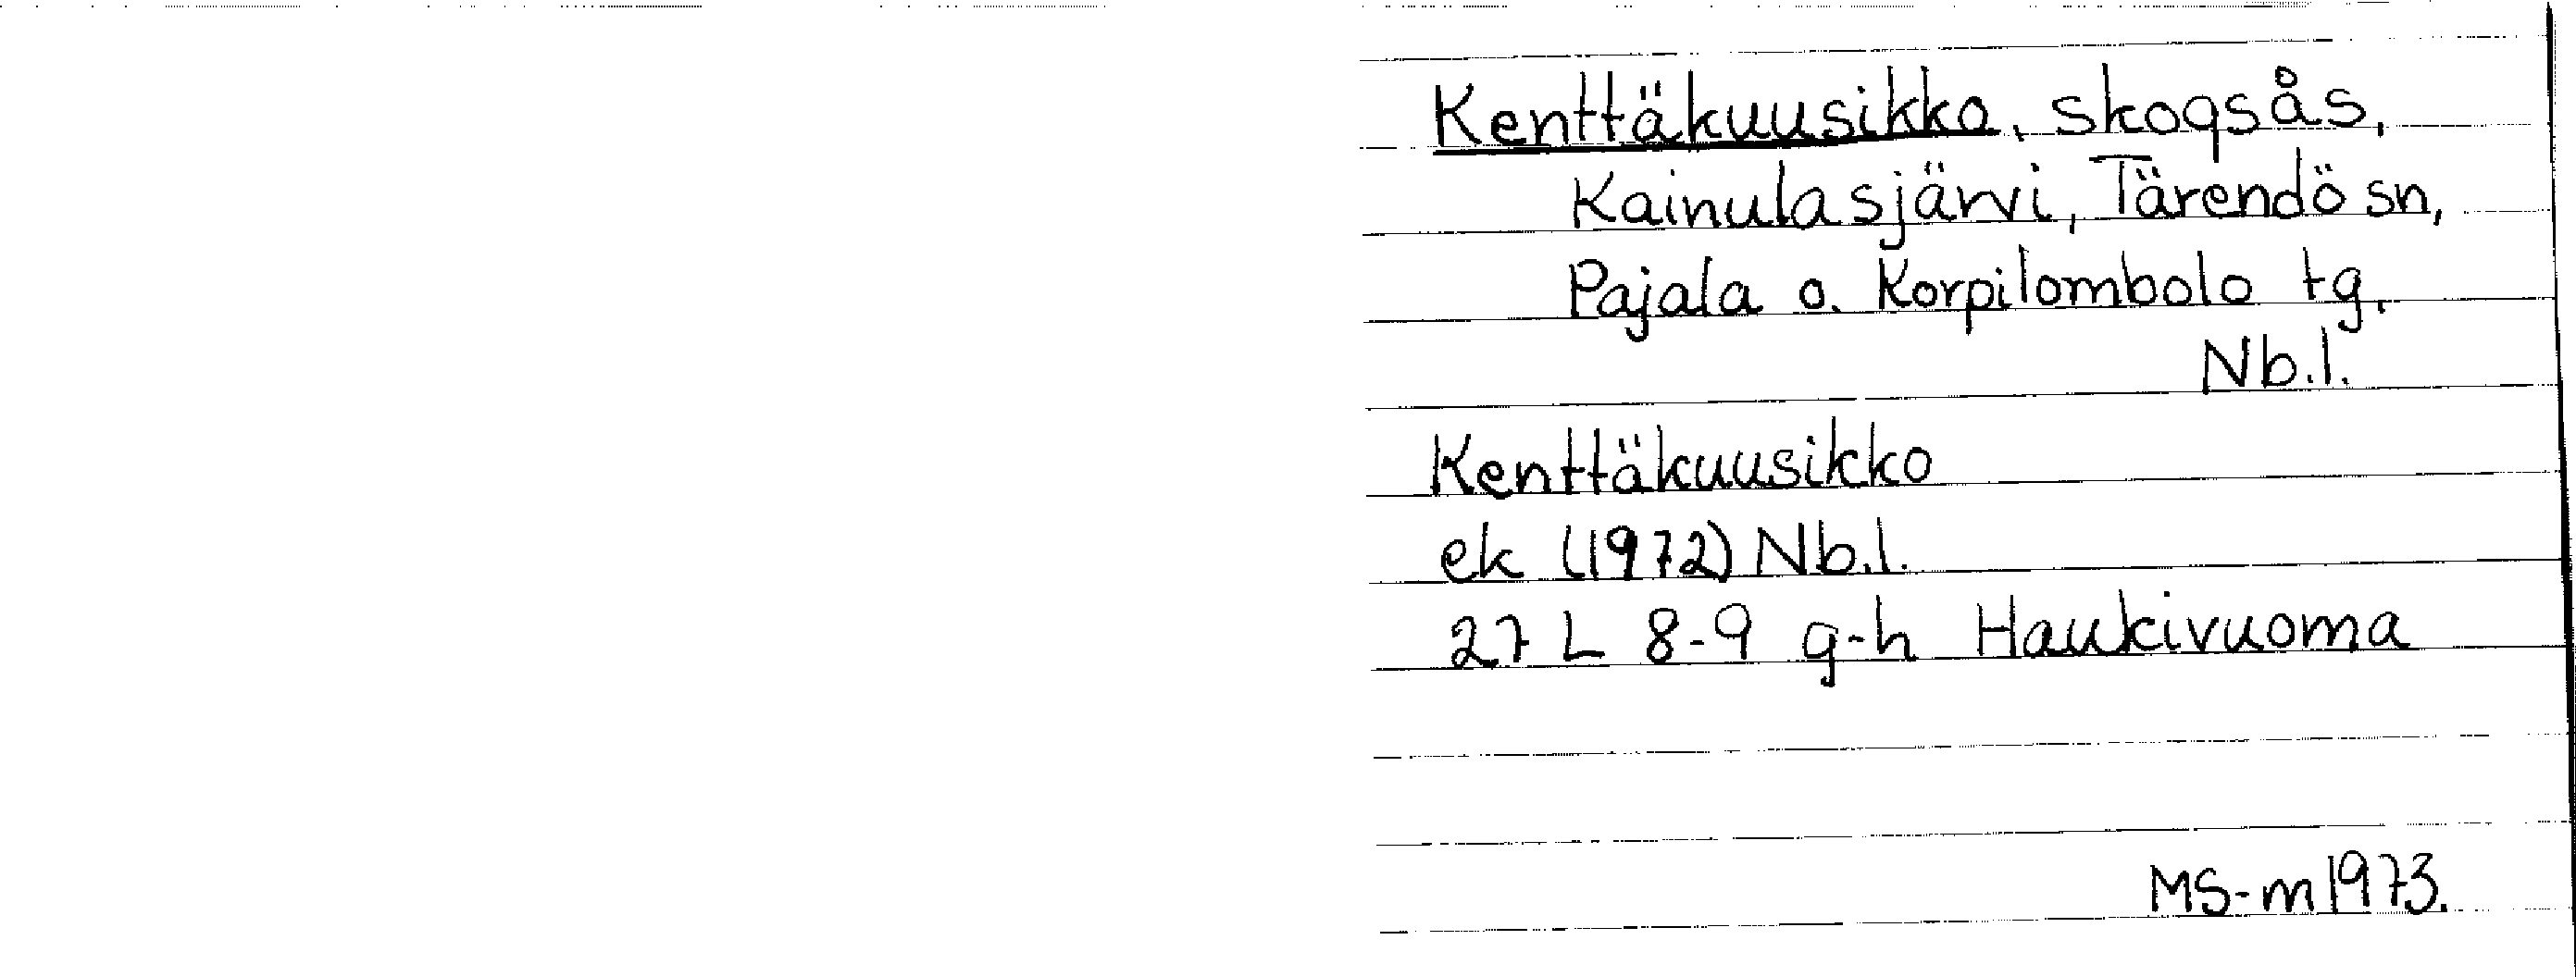 Kenttäkuusikko, skogsås,
Kainulasjärvi, Tärendö sn,
Pajala o. Korpilombolo tg,
Nb.l.
Kenttäkuusikko
ek (1972) Nb.l.
27 L 8-9 g-h Haukivuoma
MS-m 1973.